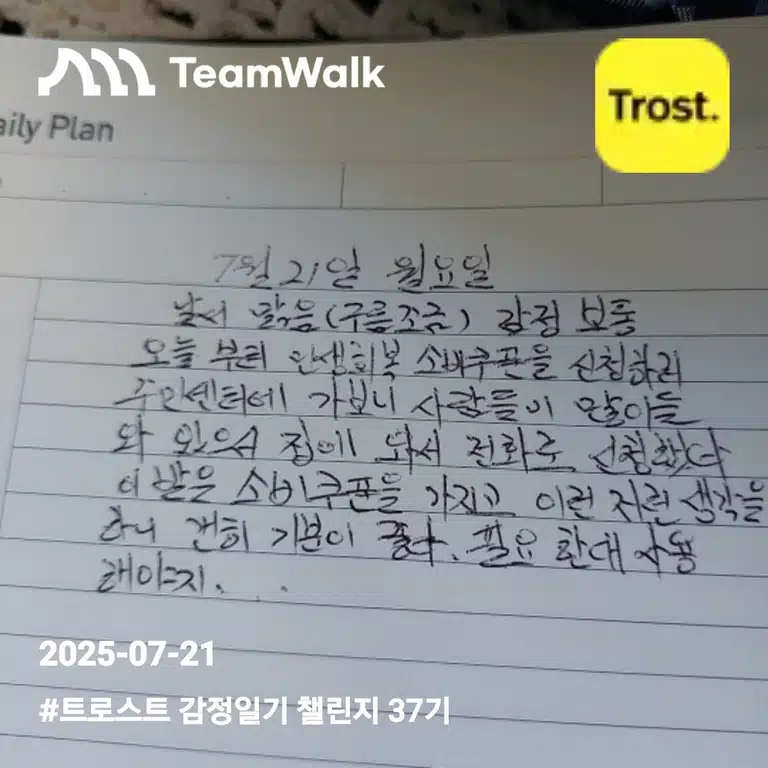 TeamWalk
Trost.
aily Plan
7월 21일 월요일
날씨 맑음(구름조금) 감정 보통
오늘 부터 민생회복 소비쿠폰을 신청하러
주민센터에 가보니 사람들이 많이들
와 있으서 집에 와서 전화로 신청했다
이 받은 소비쿠폰들 가지고 이런 저런 생각을
하니 건히 기분이 좋다. 필요 한데 사용
해야지. . .
2025-07-21
#트로스트 감정일기 챌린지 37기